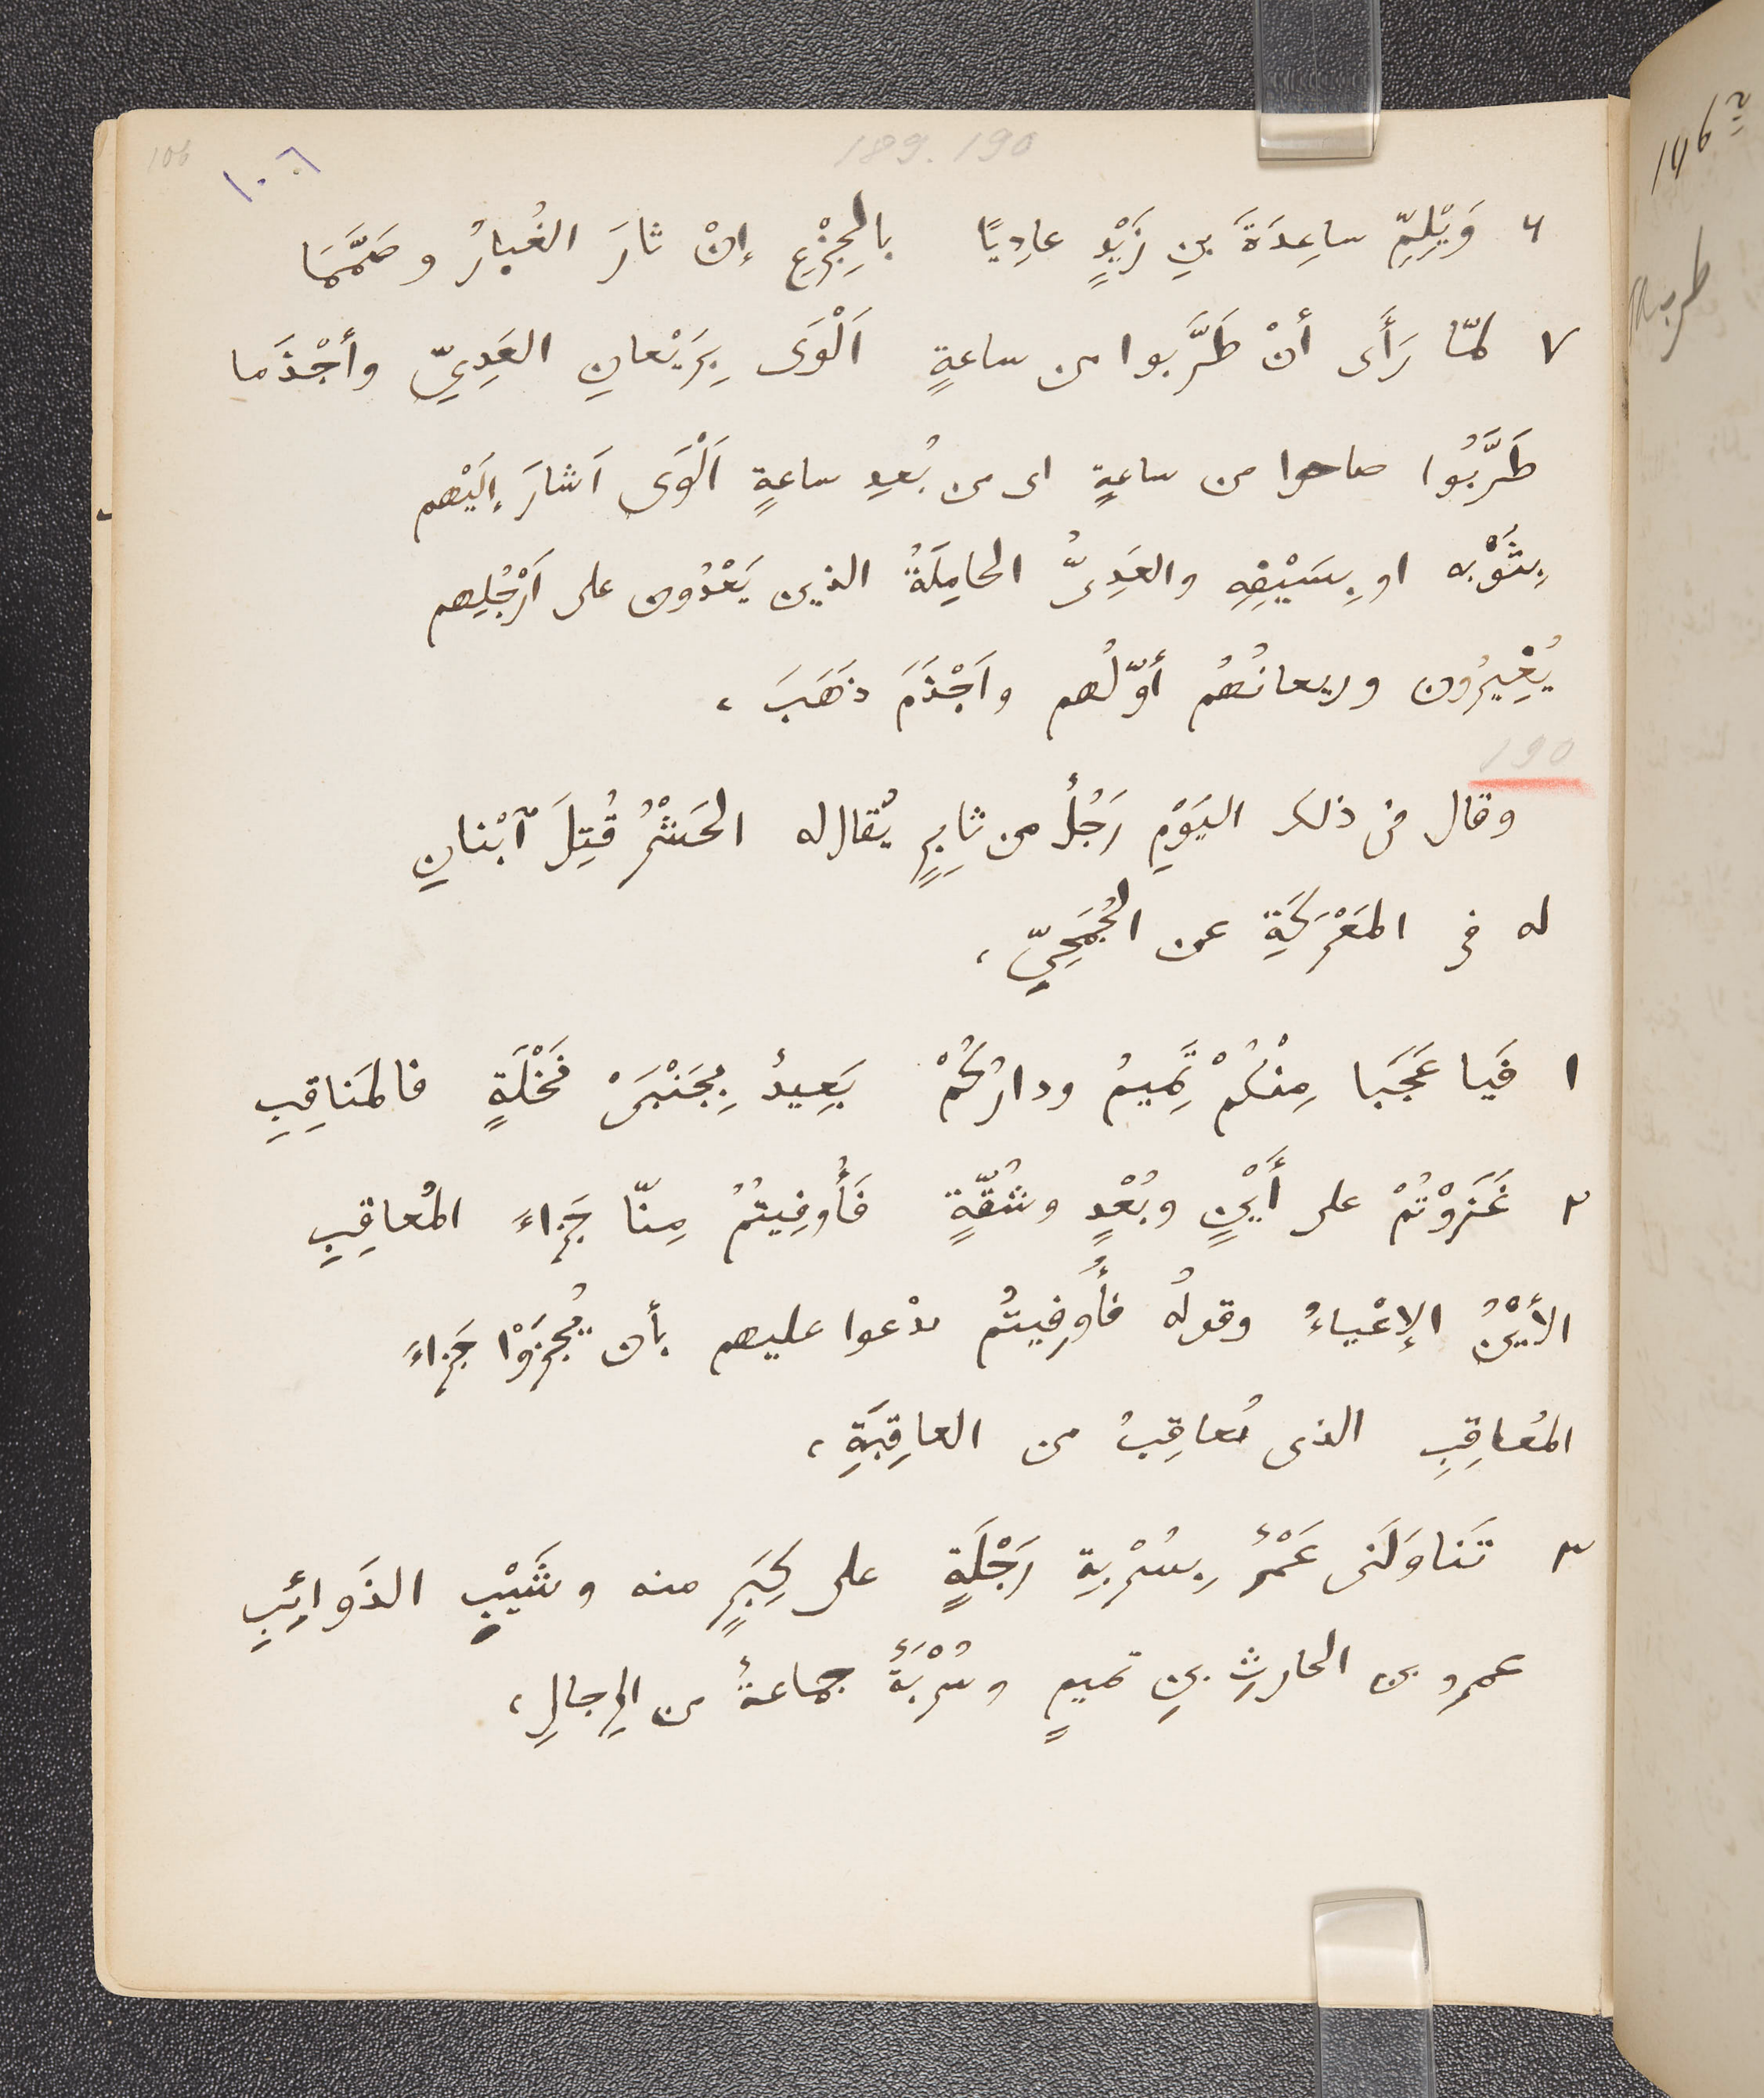 106
١٠٦
189. 190
٦ وَيْلِمِّ ساعِدَةَ بنِ زَيْدٍ عادِيًا بالجِزْعِ إنْ ثارَ الغُبارُ وصَمَّمَا
٧ لمّا رَأَى أنْ طَرَّبوا من ساعةٍ اَلْوَى بِرَيْعانِ العَدِيِّ وأجْذَما
طَرَّبُوا صاحوا من ساعةٍ اى من بُعدِ ساعةٍ اَلْوَى اَشارَ إلَيْهم
بِثَوْبه او بِسَيْفِه والعَدِىُّ الحامِلَةُ الذين يَعْدُون على اَرْجُلِهم
يُغِيرُون وريعانُهُم أوّلُهم واَجْذَمَ ذَهَبَ ،
190
وقال فى ذلك اليَوْمِ رَجُلٌ من ثابِرٍ يُقال له الحَشْرُ قُتِلَ ٱبْنانِ
له فى المَعْرَكَةِ عن الجُمَحِيِّ ،
١ فَيا عَجَبَا مِنْكُمْ تَمِيمُ ودارُكُمْ بَعِيدٌ بِجَنْبَىْ نَخْلَةٍ فالمَناقِبِ
٢ غَزَوْتُمْ على أَيْنٍ وبُعْدٍ وشُقّةٍ فَأُوفِيتُمُ مِنّا جَزاءَ المُعاقِبِ
الأَيْنُ الإعْياءُ وقولُه فأُوفِيتُم يدْعوا عليهم بأن يُجْزَوْا جَزاءَ
المُعاقِبِ الذى يُعاقِبُ من العاقِبَةِ ،
٣ تَناوَلَنى عَمْرٌ بِسُرْبةِ رَجْلَةٍ على كِبَرٍ منه وشَيْبِ الذَوائِبِ
عمرو بن الحارثِ بنِ تميمٍ وسُرْبَةٌ جماعةٌ من الرِجالِ ،